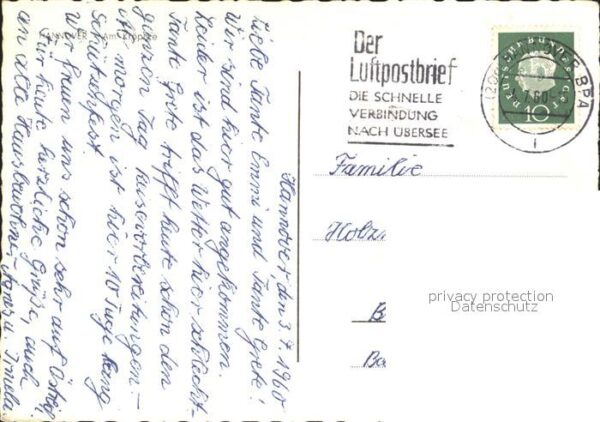 HANNOVER Am Kröpcke
Hannover, den 3.7.1960
Liebe Tante Emmi und Tante Grete!
Wir sind hier gut angekommen.
Leider ist das Wetter hier schlecht.
Tante Grete trifft heute schon den
ganzen Tag Reisevorbereitungen –
ab morgen ist hier 10 Tage lang
Schützenfest.
Wir freuen uns schon sehr auf
Für heute herzliche Grüße, auch
an alle Hausbewohner,
Der
Luftpostbrief
DIE SCHNELLE
VERBINDUNG
NACH ÜBERSEE
DEUTSCHE BUNDESPOST
10
Familie
Holz
B
Ba
privacy protection
Datenschutz